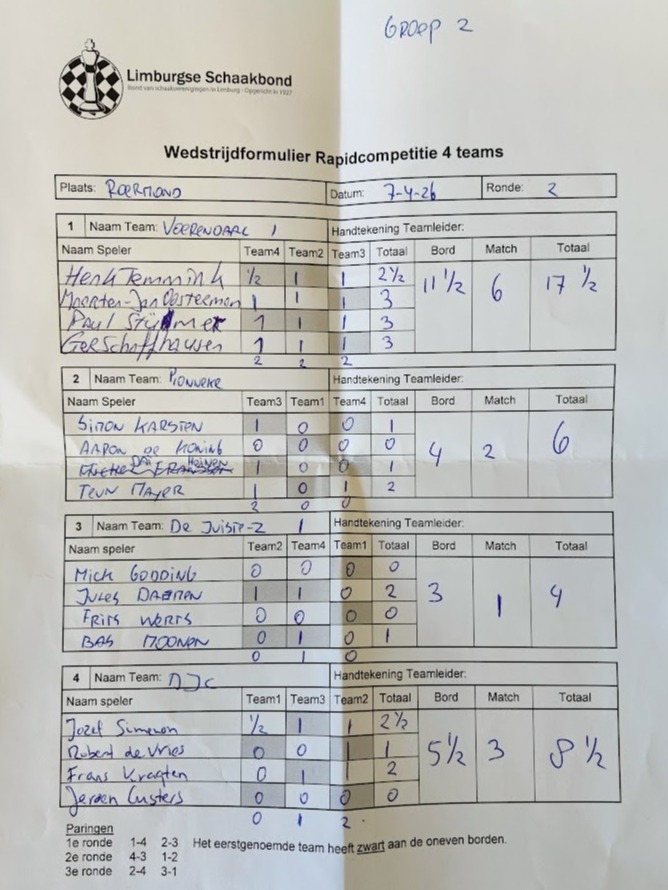 GROEP 2
Limburgse Schaakbond
Bond van schaakverenigingen in Limburg - Opgericht in 1927
Wedstrijdformulier Rapidcompetitie 4 teams
Plaats: ROERMOND Datum: 7-4-26 Ronde: 2
1 Naam Team: VOERENDAAL 1 Handtekening Teamleider:
Naam Speler Team4 Team2 Team3 Totaal Bord Match Totaal
Henk Temmink ½ 1 1 2½ 11½ 6 17½
Maarten-Jan Oosterman 1 1 1 3
Paul 1 1 1 3
Ger Schoffhausen 1 1 1 3
2 2 2
2 Naam Team: PIONNEKE Handtekening Teamleider:
Naam Speler Team3 Team1 Team4 Totaal Bord Match Totaal
SIMON KARSTEN 1 0 0 1 4 2 6
AARON DE KONING 0 0 0 0
1 0 0 1
TEUN MAYER 1 0 1 2
2 0 0
3 Naam Team: De Juiste-Z 1 Handtekening Teamleider:
Naam speler Team2 Team4 Team1 Totaal Bord Match Totaal
MICK GODDING 0 0 0 0 3 1 4
JULES DAEMEN 1 1 0 2
FRITS WERTS 0 0 0 0
BAS MOONEN 0 1 0 1
0 1 0
4 Naam Team: DJC Handtekening Teamleider:
Naam speler Team1 Team3 Team2 Totaal Bord Match Totaal
Jozef Simenon ½ 1 1 2½ 5½ 3 8½
Robert de Vries 0 0 1 1
Frans Kragten 0 1 1 2
Jeroen Custers 0 0 0 0
0 1 2
Paringen
1e ronde 1-4 2-3 Het eerstgenoemde team heeft zwart aan de oneven borden.
2e ronde 4-3 1-2
3e ronde 2-4 3-1